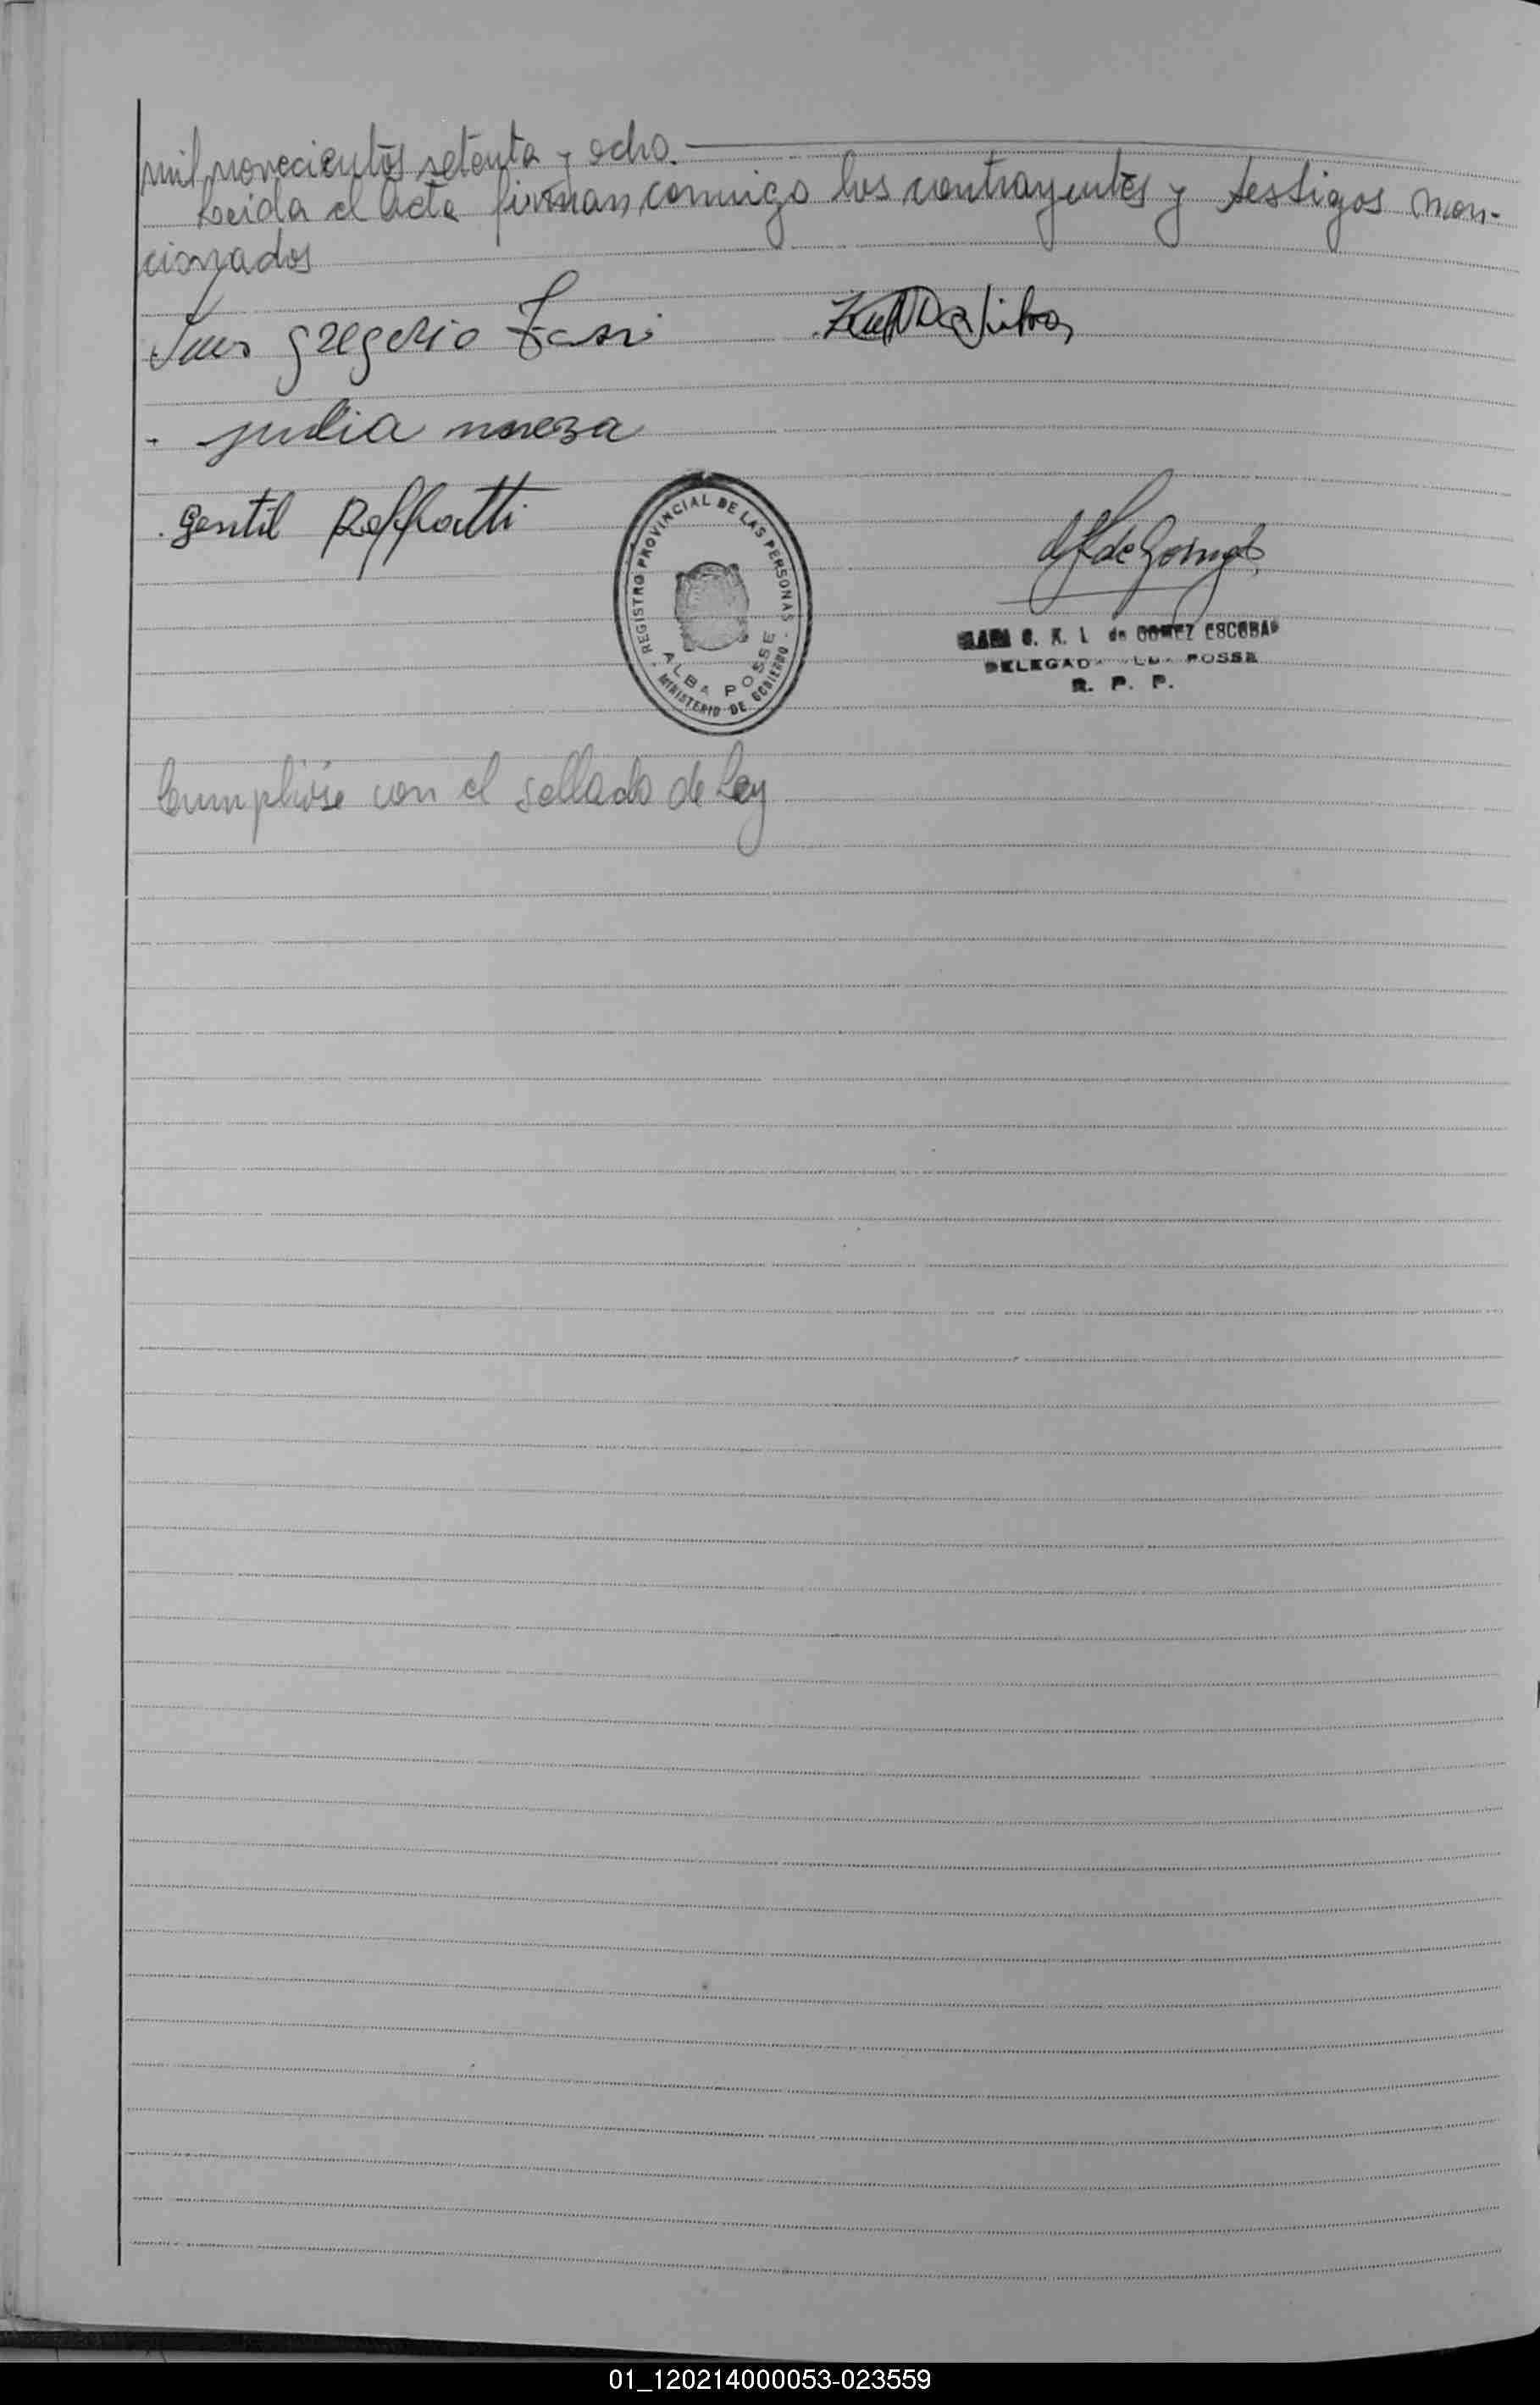 mil novecientos setenta y ocho.
Leida el Acta firman conmigo los contrayentes y testigos men-
cionados
gregorio
Da Silva
julia
gentil
REGISTRO PROVINCIAL DE LAS PERSONAS
ALBA POSSE
MINISTERIO DE GOBIERNO
de Gomez
de GOMEZ ESCOBAR
POSSE
R. P. P.
Cumplióse con el sellado de Ley
01_120214000053-023559